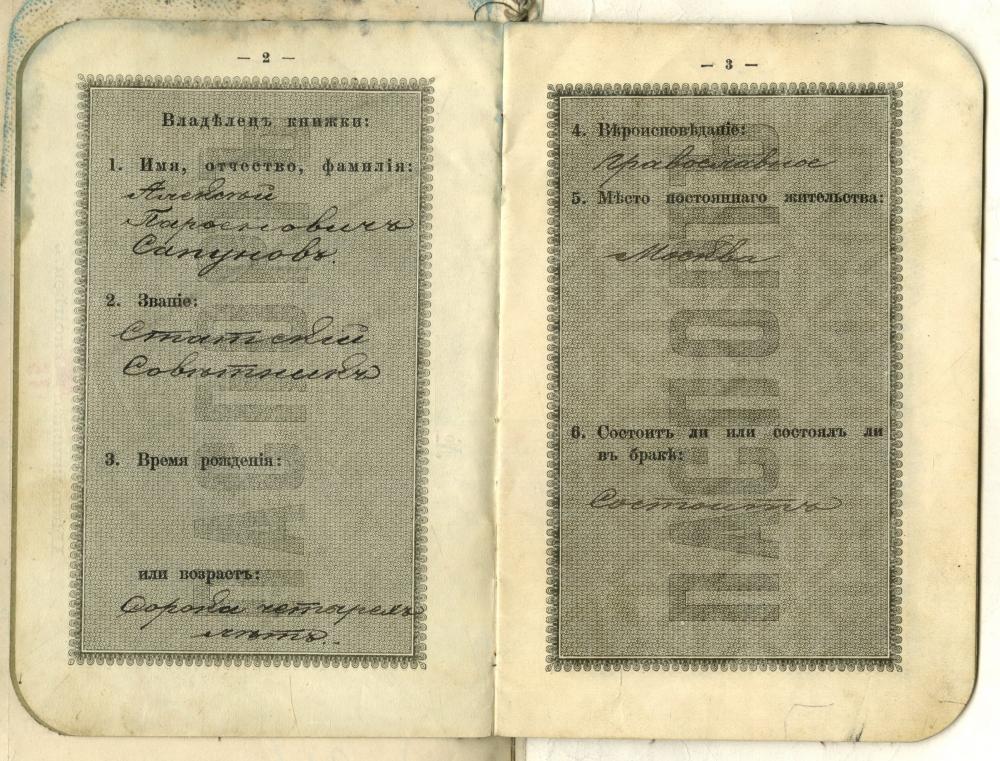 — 2 —
Владѣлецъ книжки:
1. Имя, отчество, фамилія:
Алексѣй
Парѳеновичъ
Сапуновъ.
2. Званіе:
Статскій
Совѣтникъ
3. Время рожденія:
или возрастъ:
Сорока четырехъ
лѣтъ.
— 3 —
4. Вѣроисповѣданіе:
Православное
5. Мѣсто постояннаго жительства:
Москва
6. Состоитъ ли или состоялъ ли
въ бракѣ:
Состоитъ
ПАСПОРТЪ